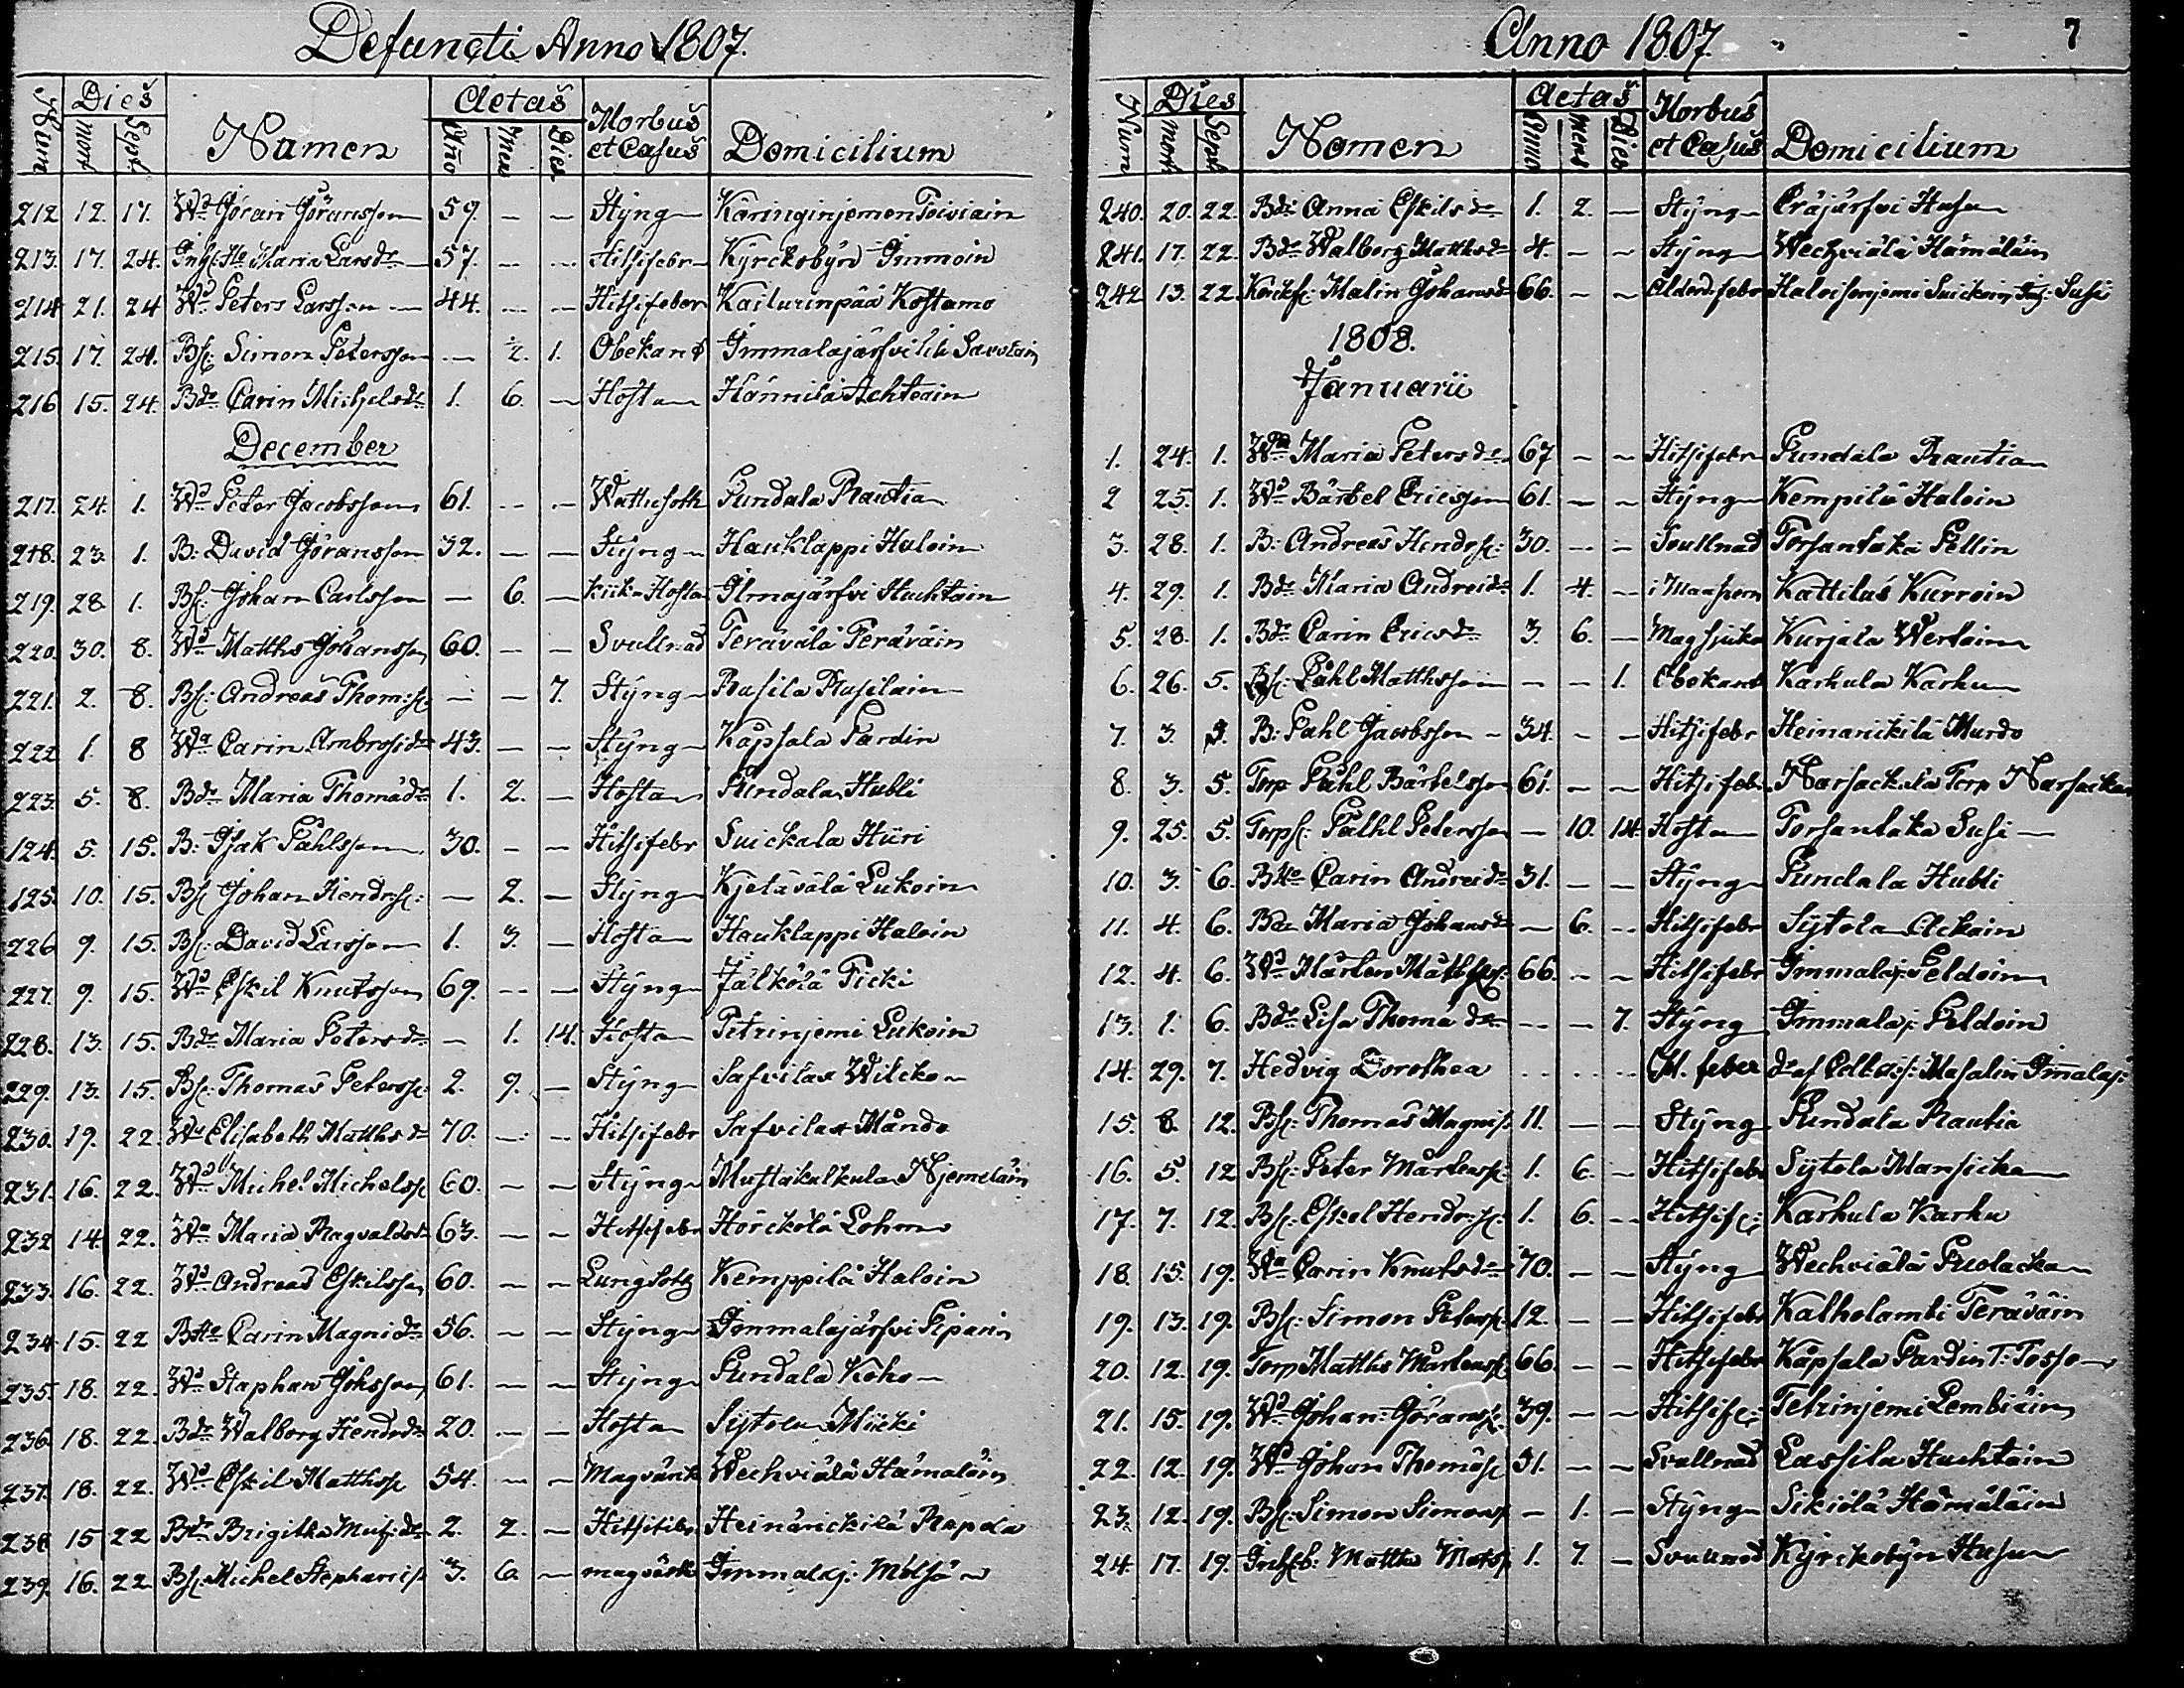 Defuncti Anno 1807.
Num Dies mort Sept. Namen Aetas Año Mens Dies Morbus et Casus Domicilium
212 12. 17. Wd Göran Göransson 59. — — Styng Käringinjemen Toiviain
213. 17. 24. Inhs. Ho Maria Larsdr 57. — — Hitsifebr Kyrckobyn Immoin
214 21. 24 Wd Peters Larsson 44. — — Hitsifeber Kailurinpää Kostamo
215. 17. 24. Bs: Simon Petersson — 2. 1. Obekand Immalajärfvi Savolain
216 15. 24. Bdr Carin Michelsdr 1. 6. — Hosta Hännilä Achtiain
December
217. 24. 1. Wd Peter Jacobsson 61. — — Wattusoth Pundala Rautia
218. 23. 1. B: David Göransson 32. — — Styng Hauklappi Haloin
219. 28. 1. Bs: Johan Carlsson — 6. — kiik Hosta Ilmajärfvi Huchtain
220. 30. 8. Wd Matths Göransson 60. — — Svullnad Terävälä Teräväin
221. 2. 8. Bs: Andreas Thom:s: — — 7. Styng Rasila Rasilain
222 1. 8 Wa Carin Ambrosidr 43. — — Styng Käpsala Pardin
223. 5. 8. Bdr Maria Thomædr 1. 2. — Hosta Pundala Hubli
124. 5. 15. B: Isak Påhlsson 30. — — Hitsifebr Suickala Hüri
125. 10. 15. Bs Johan Hendrs: — 2. — Styng Kjetävälä Lukoin
226 9. 15. Bs: David Larsson 1. 3. — Hosta Hauklappi Haloin
227. 9. 15. Wd Eskil Knutsson 69. — — Styng Jälkölä Ticki
228. 13. 15. Bdr Maria Petersdr — 1. 14. Hosta Petrinjemi Lukoin
229. 13. 15. Bs: Thomas Peterss: 2. 9. — Styng Safvilax Wilcko
230. 19. 22. Wa Elisabeth Matthsdr 70. — — Hitsifebr Safvilax Måndo
231. 16. 22. Wd Michel Michelss 60. — — Styng Mustakulkula Njemeläin
232 14. 22. Wa Maria Ragvaldsdr 63. — — Hitsifebr Hörckölä Lohm
233. 16. 22. Wd Andreas Eskilsson 60. — — Lungsotg Kemppilä Haloin
234. 15. 22 BHo Carin Magnidr 56. — — Styng Immalajärfvi Piparin
235. 18. 22. Wd Staphan Johsson 61. — — Styng Pundala Koho
236. 18. 22. Bdr Walborg Hendrdr 20. — — Hosta Sytola Mücki
237. 18. 22. Wd Eskil Matthss 54. — — Magvärck Wechviälä Hämäläin
238 15 22 Bdr Brigitha 2. 2. — Hitsifebr Heinänickilä Rapola
239. 16. 22 Bs: Michel Stephanis 3. 6. — magvärk Immalaj: Mölsä
Anno 1807 7
Num Dies mort Sept Nomen Aetas Anno mens Dies Morbus et Casus Domicilium
240. 20. 22. Bdr Anna Eskilsdr 1. 2. — Styng Eräjärfvi Husu
241. 17. 22. Bdr Walborg Matthsdr 4. — — Styng Wechviälä Hämäläin
242 13. 22. Malin Johansdr 66. — — Ålderd. febr Halvisenjemi Suickain Inh: Susi
1808.
Januarii
1. 24. 1. Wa Maria Petersdr 67 — — Hitsifebr Pundala Rautia
2 25. 1. Wd Bärtel Ericsson 61. — — Styng Kempilä Haloin
3. 28. 1. B: Andreas Hendrs: 30. — — Svullnad Torsantaka Pellin
4. 29. 1. Bdr Maria Andreidr 1. 4. — i Kattilus Kurroin
5. 28. 1. Bdr Carin Ericsdr 3. 6. — Magsjuka Kurjala Wertain
6. 26. 5. Bs: Påhl Matthsson — — 1. Obekand Karhula Karhu
7. 3. 3. B: Pahl Jacobsson 34. — — Hitsifebr Heinänikilä Murdo
8. 3. 5. Torp Påhl Bärtelsson 61. — — Hitsifebr Narsackala Torp Narsacka
9. 25. 5. Torps: Påhl Petersson — 10. 14. Hosta Torsantaka Susi
10. 3. 6. BHo Carin Andreidr 31. — — Styng Pundala Hubli
11. 4. 6. Bdr Maria Johansdr — 6. — Hitsifebr Sytola Ackain
12. 4. 6. Wd Mårten Matths: 66. — — Hitsifebr Immalaj: Peldoin
13. 1. 6. Bdr Lisa Thomædr — — 7. Styng Immalaj: Peldoin
14. 29. 7. Hedvig Dorothea . . . . . feber dr af Masalin Im̄alaj:
15. 8. 12. Bs: Thomas Magnis 11. — — Styng Pundala Rautia
16. 5. 12 Bs: Peter Mårtenss: 1. 6. — Hitsifebr Sytola Mansicka
17. 7. 12. Bs: Eskel Hendrs: 1. 6. — Hitsife: Karhula Karhu
18. 15. 19. Wa Carin Knutsdr 70. — — Styng Wechviälä Puolacka
19. 13. 19. Bs: Simon Peterss: 12. — — Hitsifebr Kalholambi Teräväin
20. 12. 19. Torp Matths Mårtenss: 66. — — Hitsifebr Käpsala Pardin T: Tosso
21. 15. 19. Wd Johan Görans: 39. — — Hitsife: Petrinjemi Lembiäin
22. 12. 19. Wd Johan Thomæs 31. — — Svullnad Lassila Huchtain
23. 12. 19. Bs: Simon Simons — 1. — Styng Sikiölä Hämäläin
24. 17. 19. Matths Mats 1. 7. — Svullnad Kyrckobyn Husu